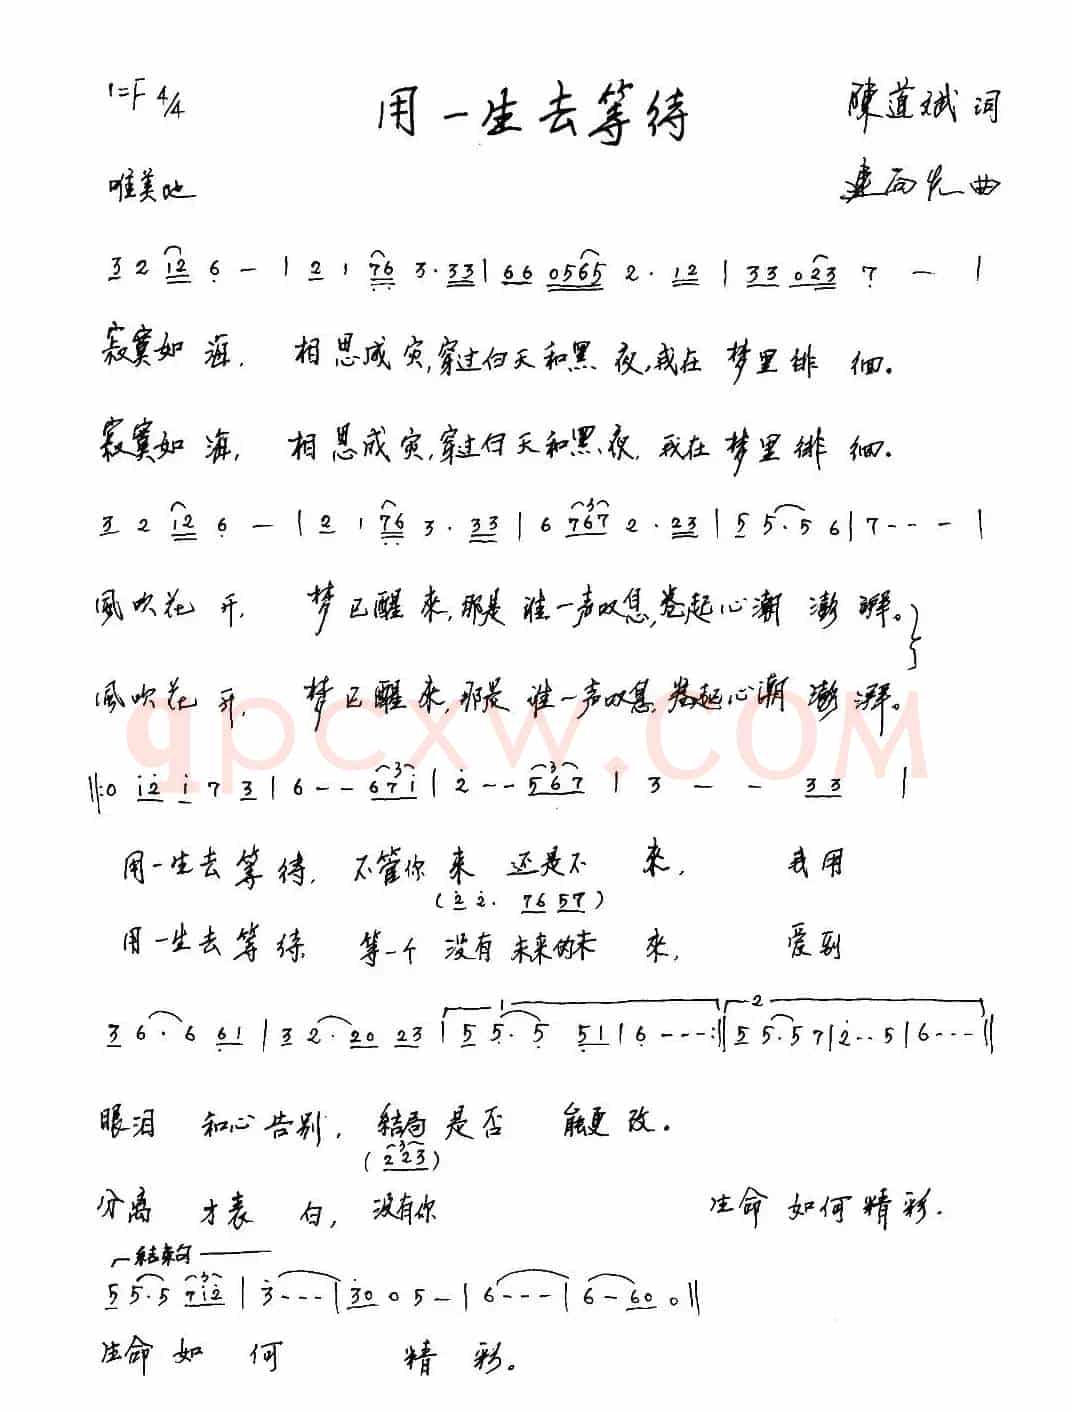 1=F 4/4
用一生去等待
陳道斌 词
唯美地
曲
3 2 12 6 — | 2 1 76 3·33 | 66 0565 2·12 | 33 023 7 — |
寂寞如海, 相思成灾,穿过白天和黑夜,我在梦里徘徊。
寂寞如海, 相思成灾,穿过白天和黑夜,我在梦里徘徊。
3 2 12 6 — | 2 1 76 3·33 | 6 767 2·23 | 5 5·5 6 | 7 - - - |
風吹花开, 梦已醒來,那是谁一声叹息,卷起心潮澎湃。
風吹花开, 梦已醒來,那是谁一声叹息,卷起心潮澎湃。
qpcxw.COM
‖:0 12 1 7 3 | 6 - - 671 | 2 - - 567 | 3 — — 33 |
用一生去等待, 不管你來还是不來, 我用
(2 2· 76 57)
用一生去等待 等一个没有未来的未來, 爱到
3 6·6 61 | 3 2·20 23 | 1 5 5·5 51 | 6 - - - :‖ 2 5 5·57 | 2 - - 5 | 6 - - - ‖
眼泪和心告别, 结局是否能更改。
(223)
分离才表白, 没有你 生命如何精彩.
结束句
5 5·5 712 | 3 - - - | 30 0 5 — | 6 - - - | 6 — 60 0 ‖
生命如何精彩。